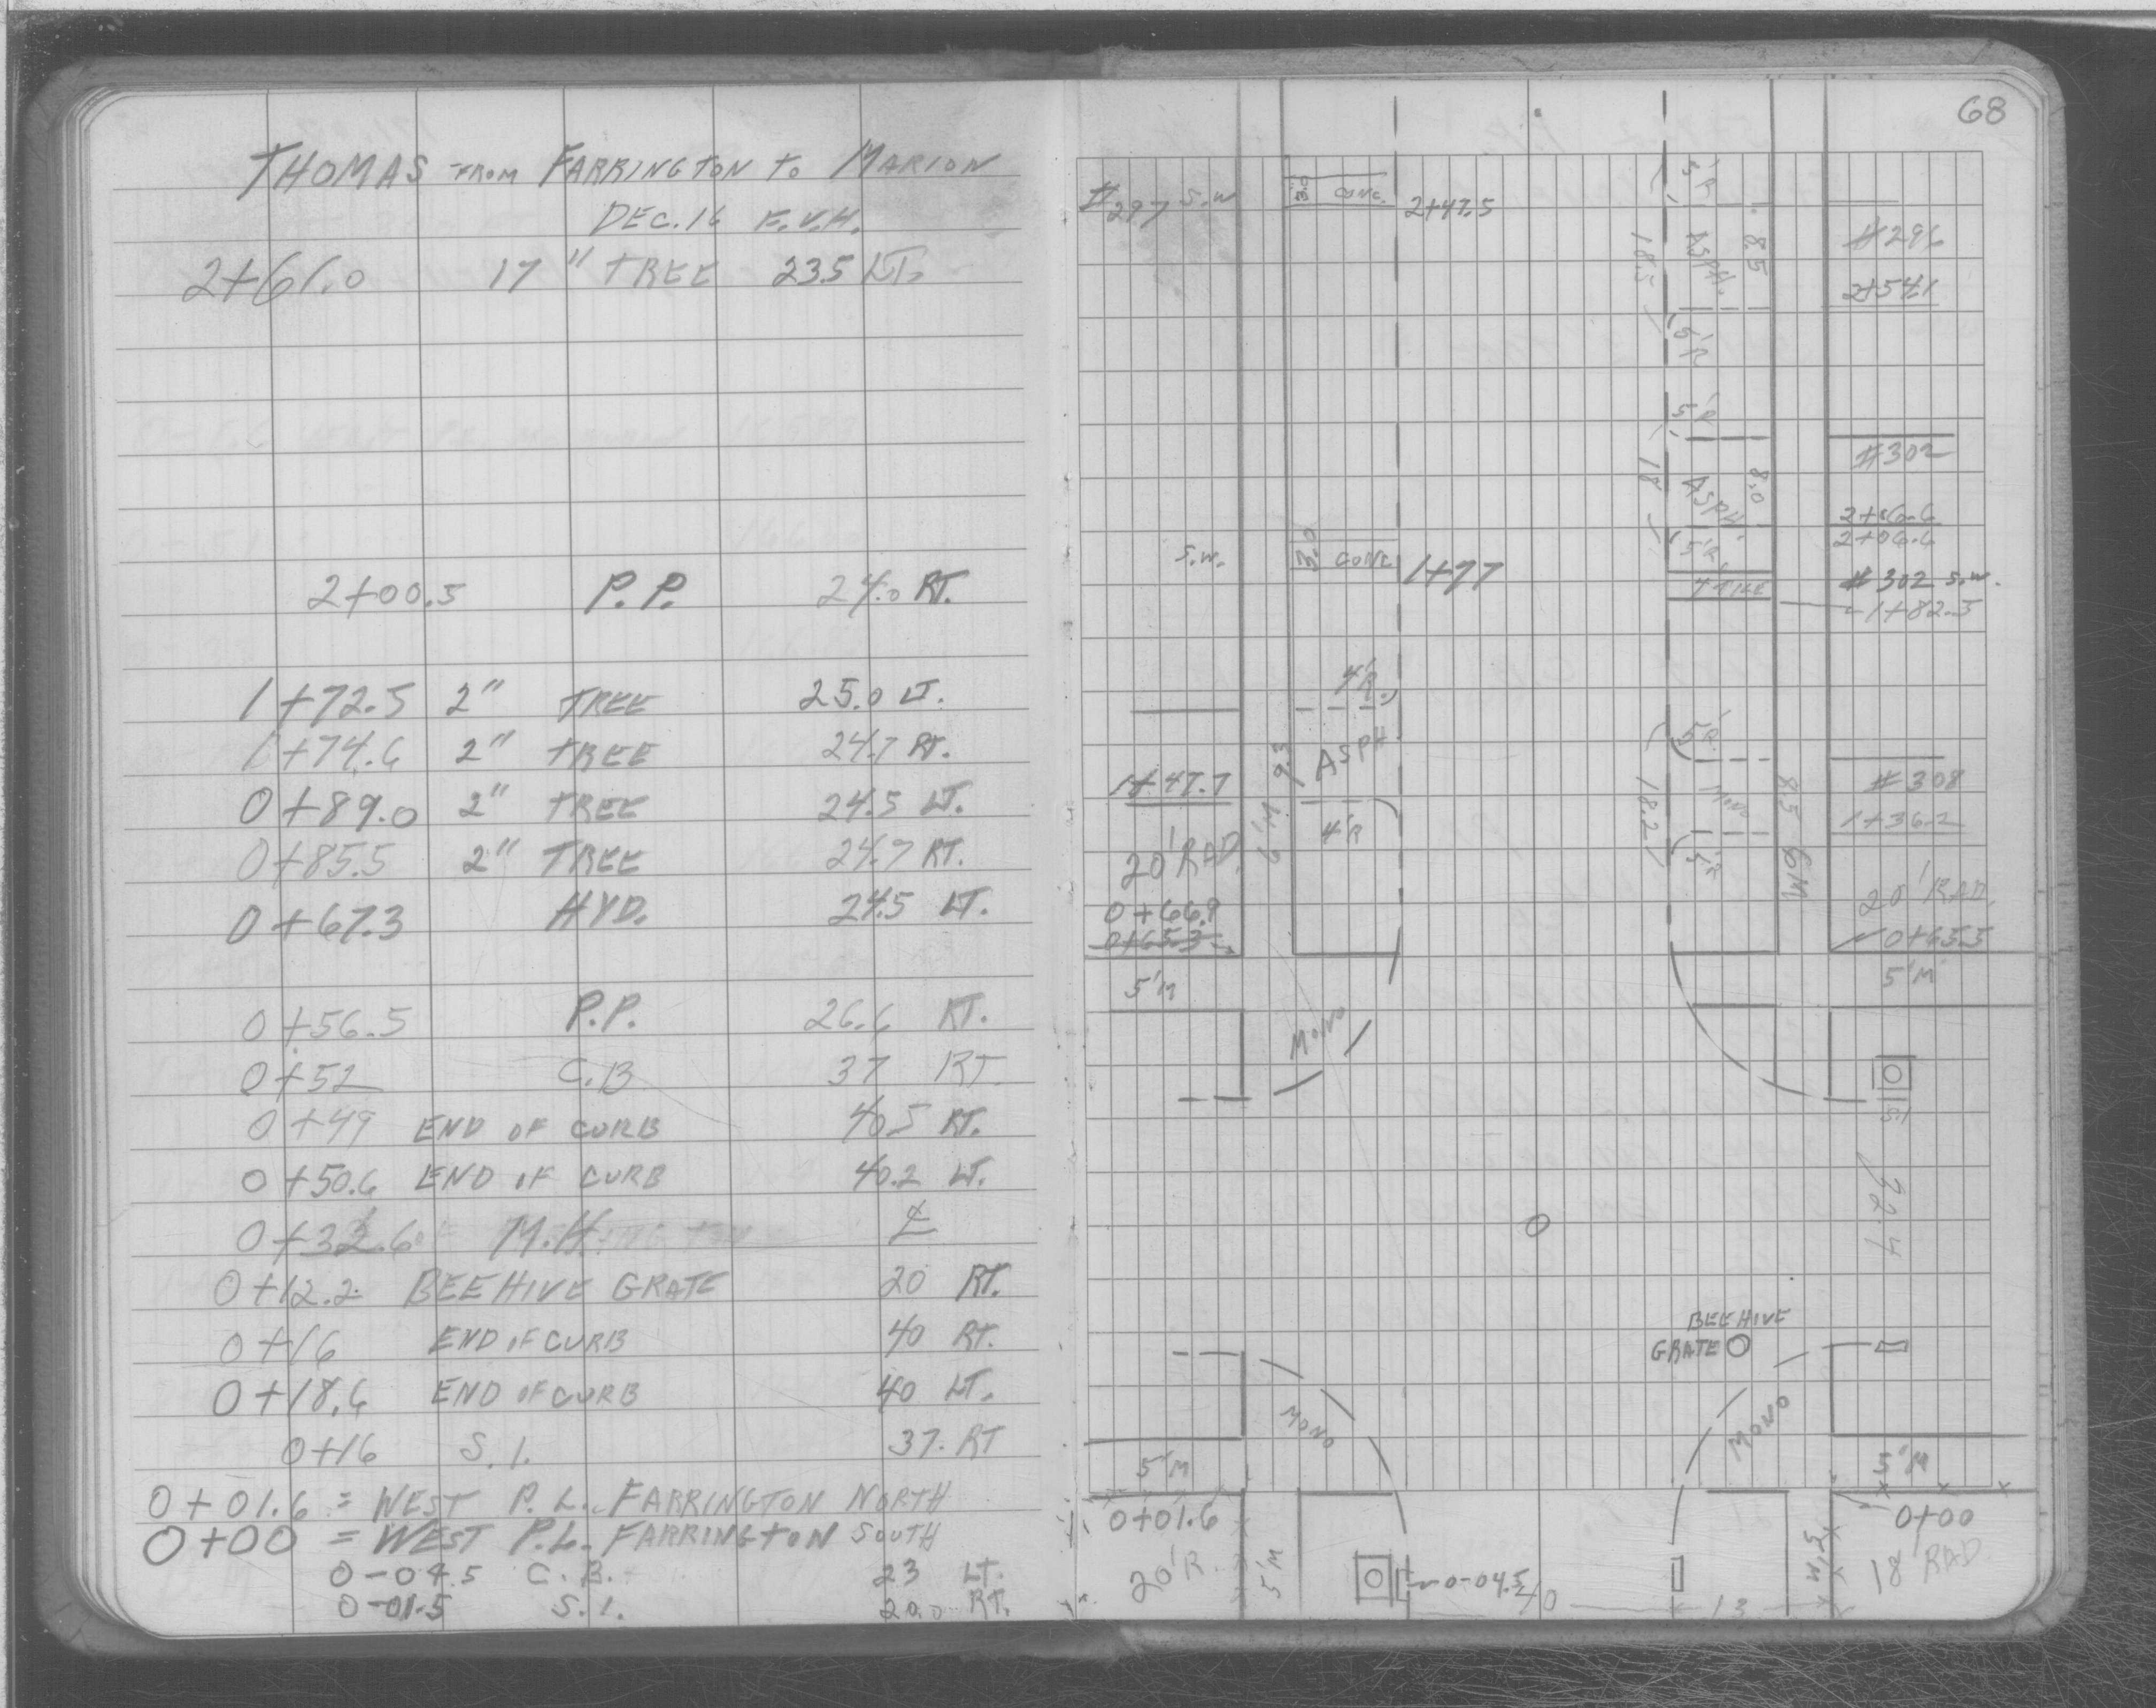 THOMAS FROM FARRINGTON TO MARION
DEC. 16 F.V.H.
2+61.0 17" TREE 23.5 LT.
2+00.5 P.P. 24.0 RT.
1+72.5 2" TREE 25.0 LT.
1+74.6 2" TREE 24.7 RT.
0+89.0 2" TREE 24.5 LT.
0+85.5 2" TREE 24.7 RT.
0+67.3 HYD. 24.5 LT.
0+56.5 P.P. 26.6 RT.
0+52 C.B. 37 RT
0+49 END OF CURB 40.5 RT.
0+50.6 END OF CURB 40.2 LT.
M.H. ℄
0+12.2 BEEHIVE GRATE 20 RT.
0+16 END OF CURB 40 RT.
0+18.6 END OF CURB 40 LT.
0+16 S.I. 37. RT
0+01.6 = WEST P.L. FARRINGTON NORTH
0+00 = WEST P.L. FARRINGTON SOUTH
0-04.5 C.B. 23 LT.
0-01.5 S.I. 20.0 RT.
68
#297 S.W 3.0 CONC. 2+47.5
5'R
18.5 ASPH. 8.5
#296
2+54.1
5'R
5'R
#302
18 ASPH. 8.0
2+06.6
2+06.6
5'R
S.W. 3.0 CONC 1+77
4' TILE #302 S.W.
1+82.5
4'R.
5'R.
9.3 ASPH
1+47.7
18.2 MONO 8.5
#308
1+36.2
4'R
5'R
6'M
6'M
20' RAD.
0+66.9
0+65.3
20' RAD.
0+65.5
5'M
5'M
MONO
S.I
32.4
BEEHIVE
GRATE
MONO
MONO
5'M
5'M
0+01.6
0+00
20'R.
5'M
0-04.5
40
13
5'M
18 RAD